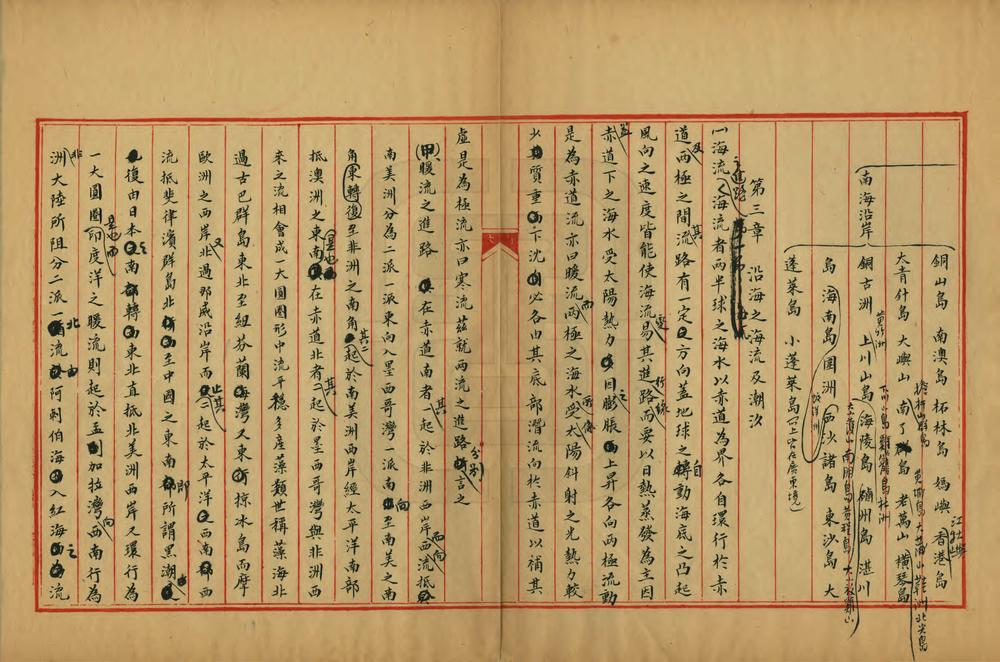 銅山島 南澳島 柘林島 媽嶼 香港島
南海沿岸
大青针島 大嶼山 南了島 老萬山 橫琴島
銅古洲 上川山島 海陵島 硇州島 湛川
島 海南島 圍洲 石沙諸島 東沙島 大
蓬萊島 小蓬萊島
第三章 沿海之海流及潮汐
一海流 海流者兩半球之海水以赤道為界各自環行於赤
道及兩極之間其流路有一定之方向蓋地球之自轉動海底之凸起
風向之速度皆能使海流易其進路而要以日熱蒸發為主因
蓋赤道下之海水受太陽熱力因之膨脹上昇各向兩極流動
是為赤道流亦曰暖流而兩極之海水所受太陽斜射之光熱力較
少質重下沈必各由其底部潛流向於赤道以補其
虛是為極流亦曰寒流茲就兩流之進路分別言之
(甲)暖流之進路 在赤道南者其一起於非洲西岸西向流抵
南美洲分為二派一派東向入墨西哥灣一派南向至南美之南
角東轉復至非洲之南角其二起於南美洲西岸經太平洋南部
抵澳洲之東南是也在赤道北者其一起於墨西哥灣與非洲西
來之流相會成一大圓圈形中流平穩多產藻類世稱藻海北
過古巴群島東北至紐芬蘭海灣又東掠冰島而摩
歐洲之西岸又北過那威沿岸而止其二起於太平洋之西南部西
流抵斐律濱群島北至中國之東南即所謂黑潮
復由日本之南轉東北直抵北美洲西岸又環行為
一大圓圈是也而印度洋之暖流則起於孟加拉灣向西南行為
非洲大陸所阻分二派一北流由阿剌伯海入紅海之流